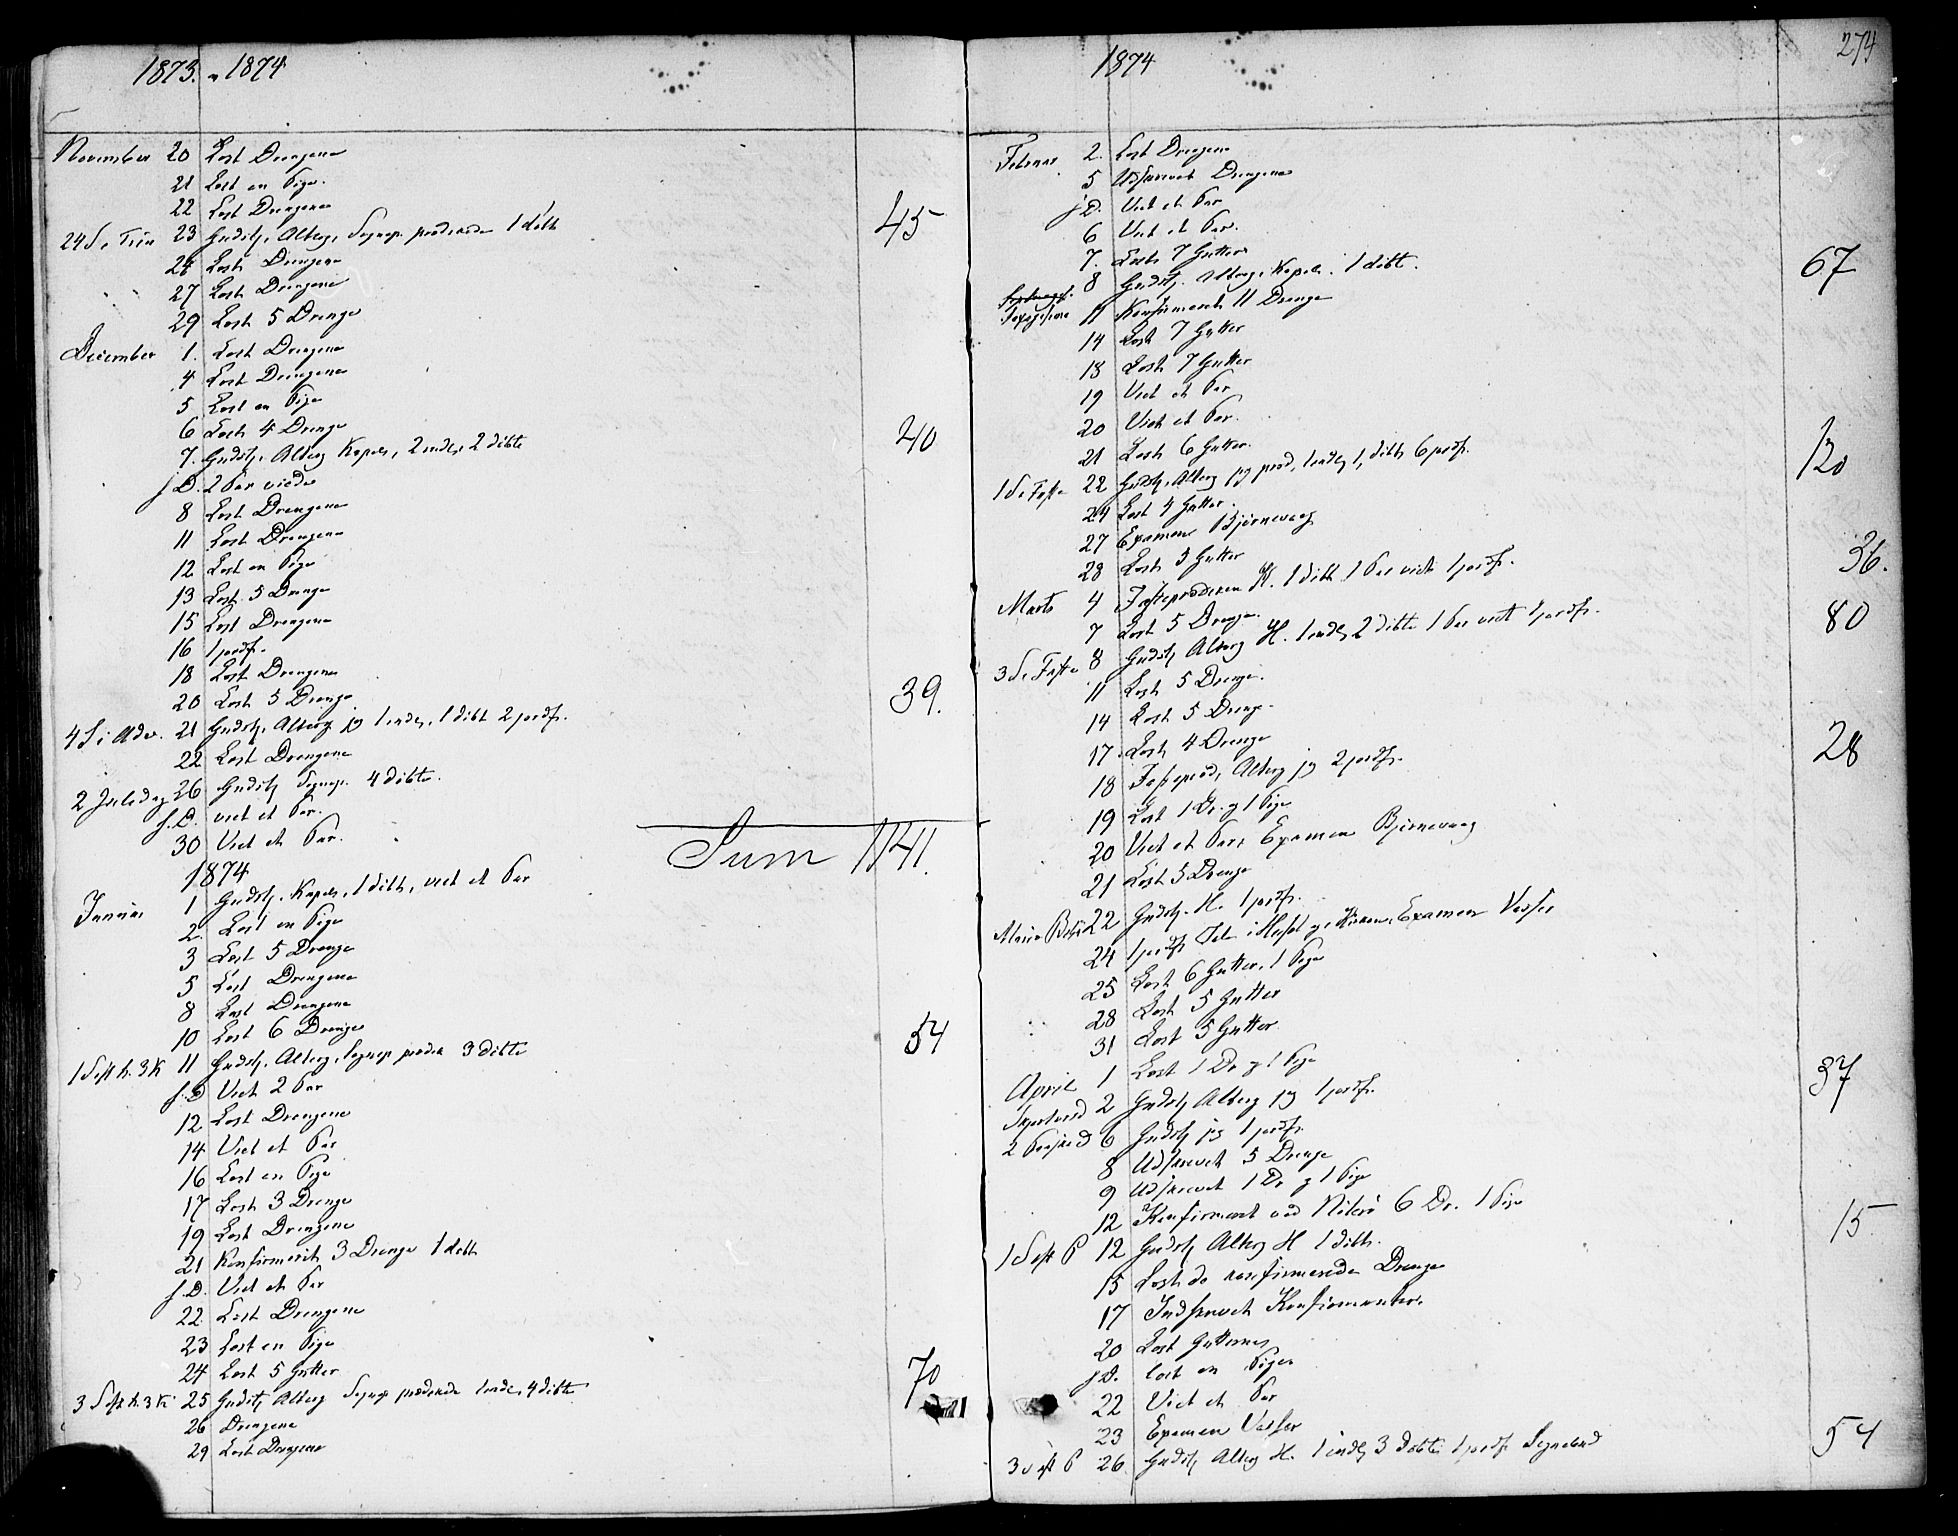 1873. 1874
November 20 Læst Drengene
21 Læst en Pige.
22 Læst Drengene
24 S. e Trin 23 Gudstj. Alterg. Sognep. prædikede 1 døbt
24 Læst Drengene
45
27 Læst Drengene
29 Læst 5 Drenge
December 1. Læst Drengene
4 Læst Drengene
5 Læst en Pige
6 Læst 4 Drenge
7. Gudstj. Alterg Kapel, 2 indl, 2 døbte
40
s. D. 2 Par viede
8 Læst Drengene
11 Læst Drengene
12 Læst en Pige
13 Læst 5 Drenge
15 Læst Drengene
16 1 jordf.
18 Læst Drengene
20 Læst 5 Drenge
4 S i Adv. 21 Gudstj. Alterg jeg 1 indl, 1 døbt 2 jordf.
39.
22 Læst Drengene
2 Juledag 26 Gudstj Sognep. 4 døbte.
s. D. viet et Par.
30 Viet et Par.
Sum 1141.
1874
Januar 1 Gudstj. Kapel, 1 døbt, viet et Par
2. Læst en Pige
3 Læst 5 Drenge
5 Læst Drengene
8 Læst Drengene
10 Læst 6 Drenge
1 S eft h. 3 K 11 Gudstj. Alterg. Sognep præden 3 døbte
54
s. D Viet 2 Par
12 Læst Drengene
14 Viet et Par
16 Læst en Pige
17 Læst 3 Drenge
19 Læst Drengene
21 Konfirmerit 3 Drenge 1 døbt
s. D. Viet et Par
22. Læst Drengene
23 Læst en Pige
24 Læst 5 Gutter
3 S eft h. 3 K 25 Gudstj Alterg Sognep prædikede 1 indl, 4 døbte
70
26 Drengene
29 Læst Drengene
1874
274
Februar 2. Læst Drengene
5 Udskrevet Drengene
s D. Viet et Par
6 Viet et Par.
7. Læst 7 Gutter
8 Gudstj. Alterg. Kapel. 1 døbt.
67
11 Konfirmeret 11 Drenge
14 Læst 7 Gutter
18 Læst 7 Gutter
19 Viet et Par
20 Viet et Par.
21 Læst 6 Gutter.
1 S i Faste 22 Gudstj. Alterg jeg præd, 1 indl, 1 døbt 6 jordf.
120
24 Læst 4 Gutter.
27 Examen Bjørnevaag
28 Læst 5 Gutter
Marts 4 Fasteprædiken K. 1 døbt 1 Par viet 1 jordf.
36.
7 Læst 5 Drenge.
3 S. i Faste 8 Gudstj Alterg H. 1 indl, 2 døbte 1 Par viet 1 jordf.
80
11 Læst 5 Drenge.
14 Læst 5 Drenge.
17. Læst 4 Drenge
18 Fasteprædi, Alterg jeg 2 jordf.
28
19 Læst 1 Dr. og 1 Pige
20 Viet et Par, Examen Bjørnevaag
21 Læst 5 Drenge
Maria Beb. 22 Gudstj. H. 1 jordf.
24 1 jordf Examen Vasser
25 Læst 6 Gutter, 1 Pige
28 Læst 5 Gutter
31 Læst 5 Gutter
April 1 Læst 1 Dr og 1 Pige
2 Gudstj Alterg jeg 1 jordf.
37
2 Paaskd 6 Gudstj jeg 1 jordf.
8 Udskrevet 5 Drenge
9 Udskrevet 1 Dr og 1 Pige
12 Konfirmeret 6 Dr. 1 Pige
1 S eft P 12 Gudstj Alterg H 1 døbt.
15
15 Læst de konfirmerede Drenge
17 Indskrevet Konfirmanter.
20 Læst Gutterne
s D. læst en Pige
22 Viet et Par
23 Examen Vasser
3 S eft P 26. Gudstj Alterg H. 1 indl, 3 døbte 1 jordf
54